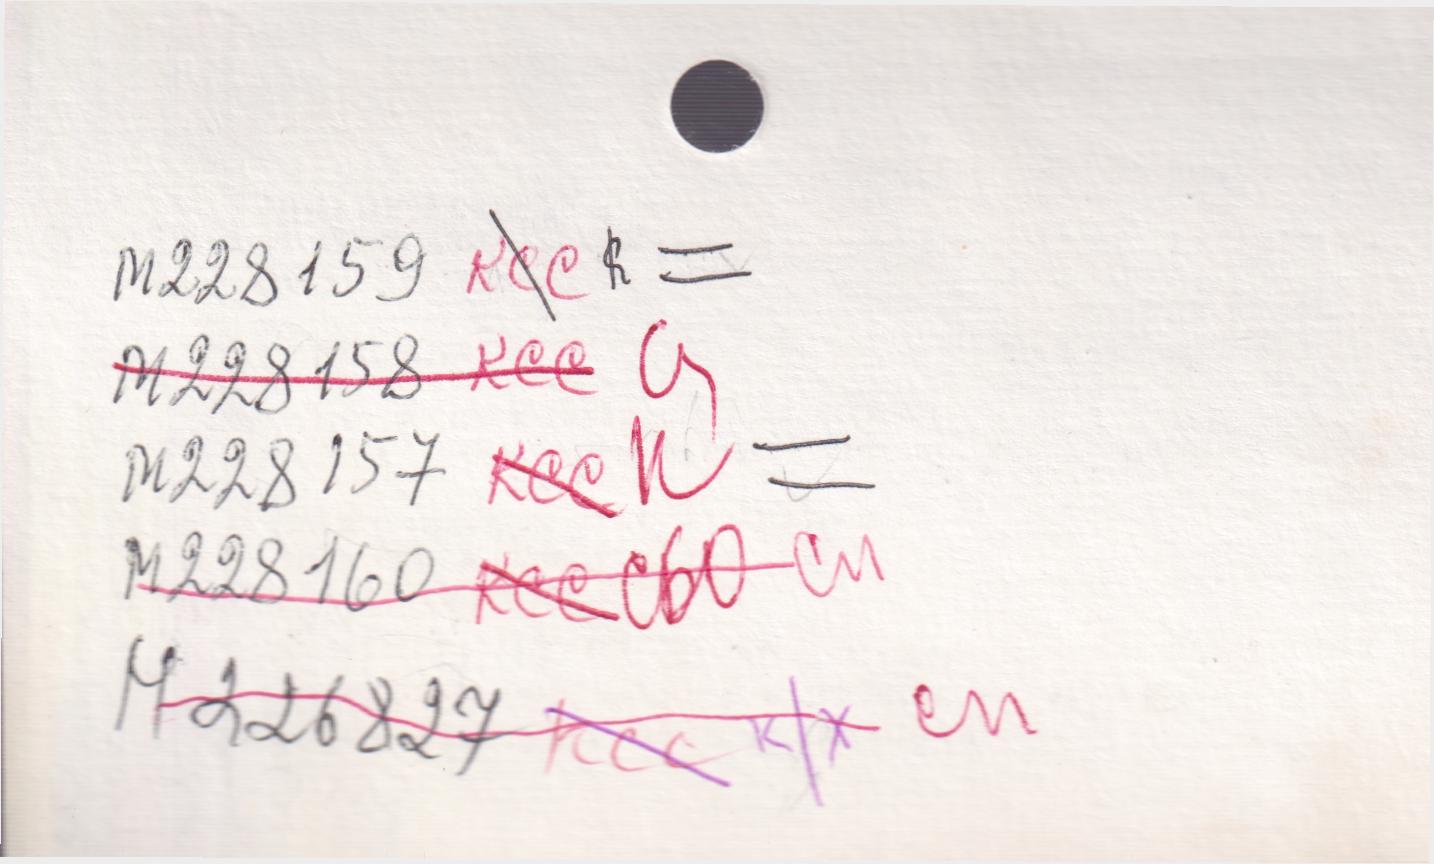 М228159 ксс к =
М228158 ксс
М228157 ксс К =
М228160 ксс сбо сп
М226827 ксс к/х сп